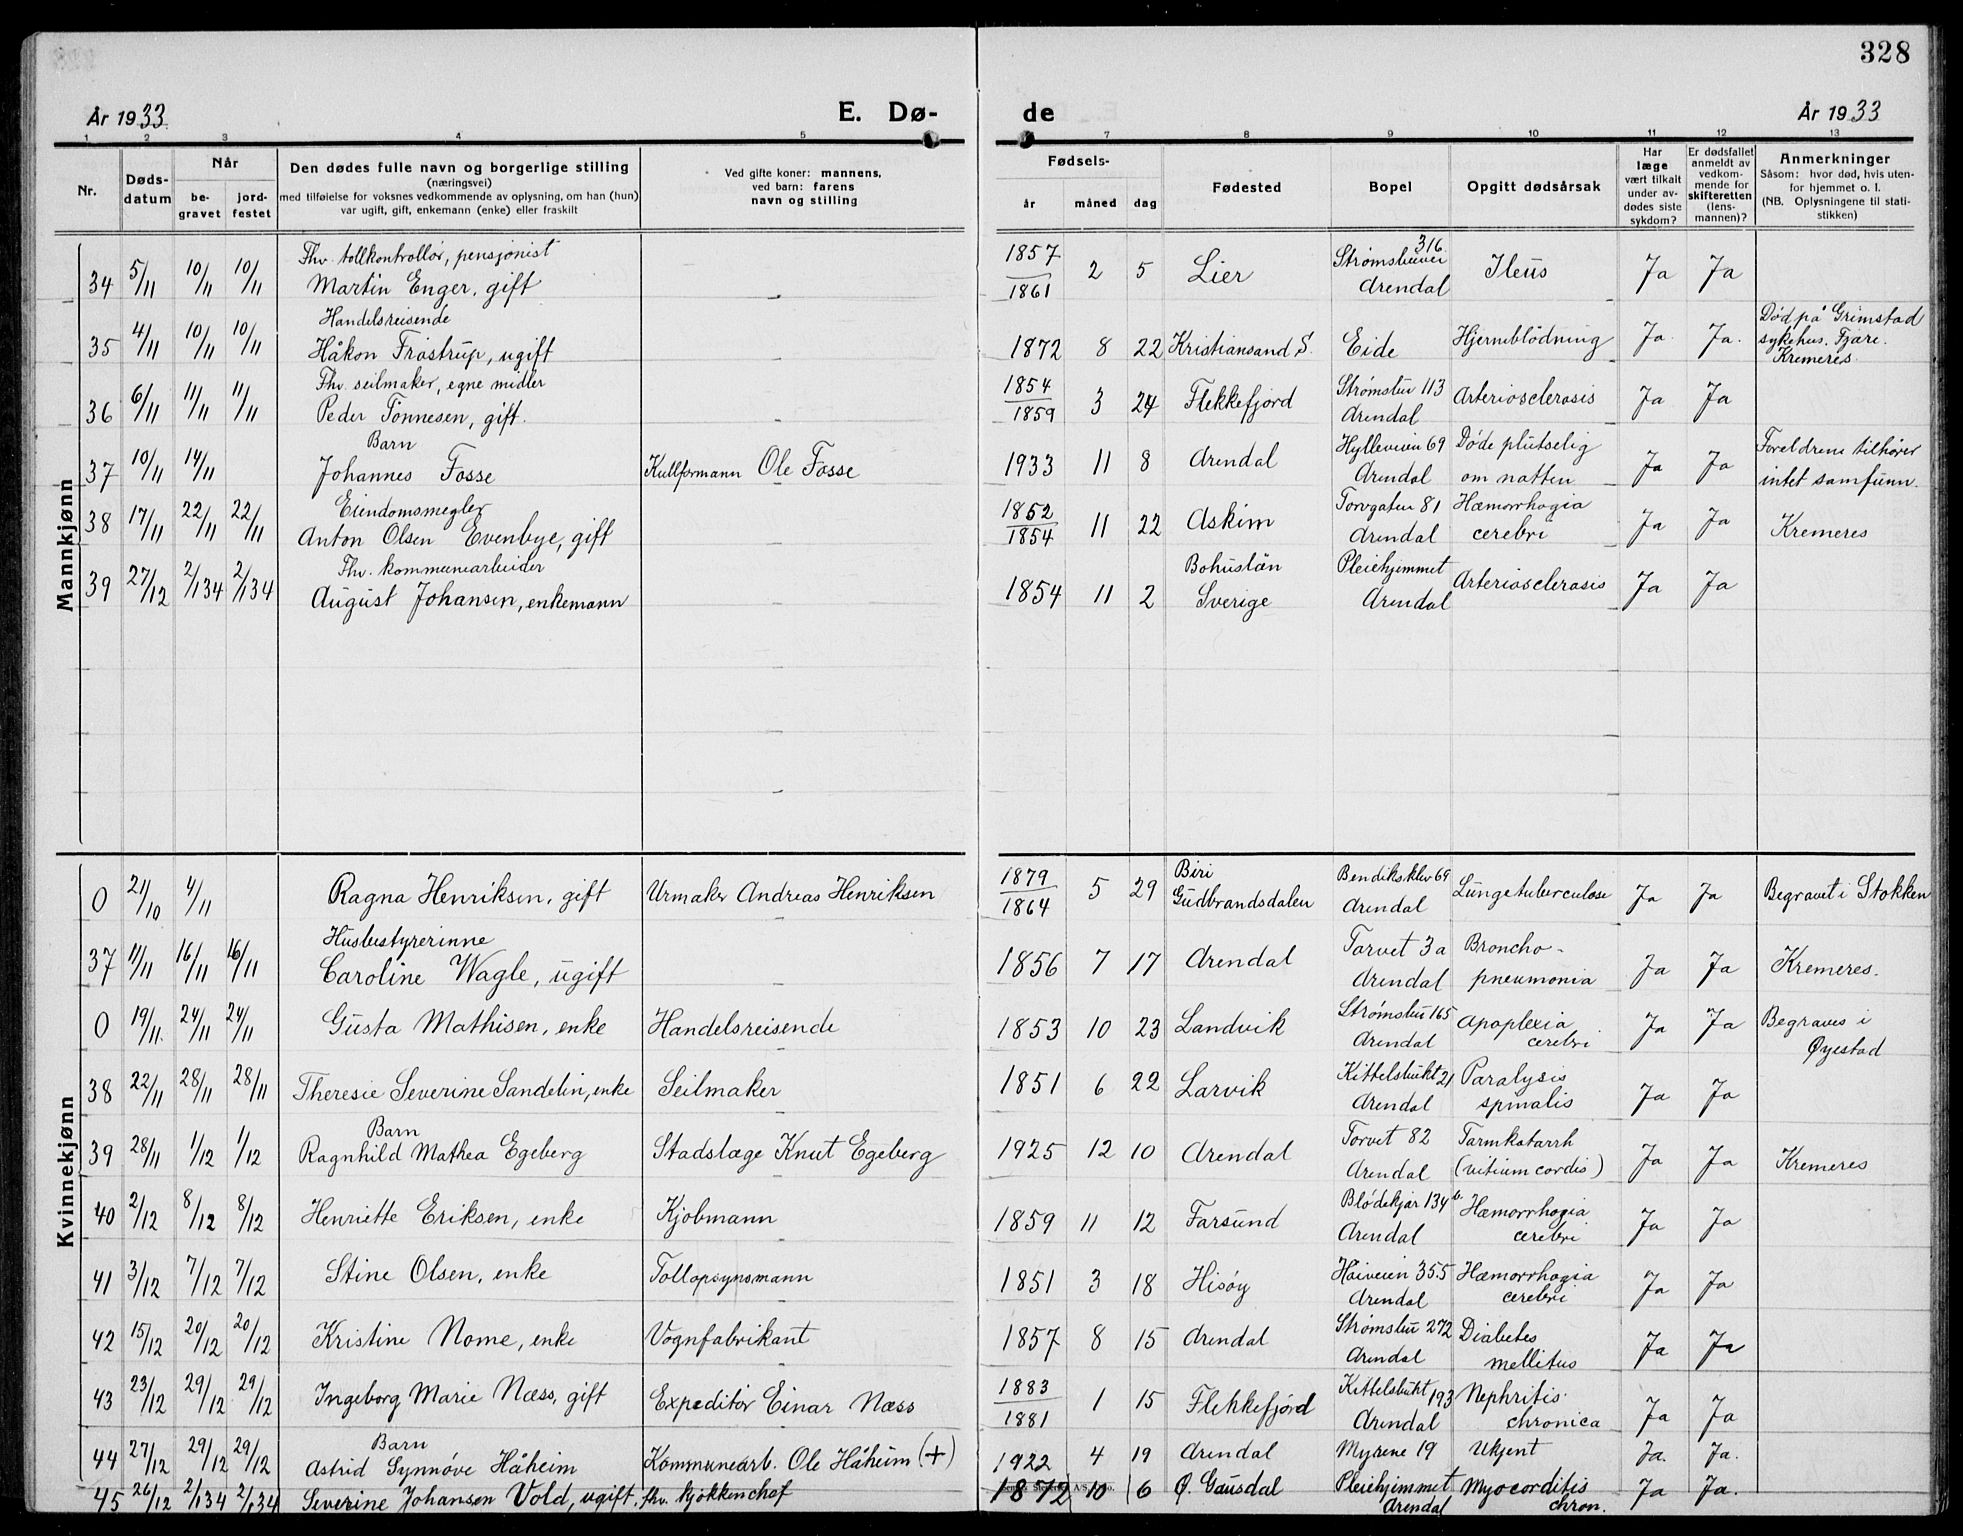 328
År 1933 E. Dø- de År 1933
1 2 3 4 5 7 8 9 10 11 12 13
Nr. Døds-datum Når be-gravet jord-festet Den dødes fulle navn og borgerlige stilling (næringsvei) med tilføielse for voksnes vedkommende av oplysning, om han (hun) var ugift, gift, enkemann (enke) eller fraskilt Ved gifte koner: mannens, ved barn: farens navn og stilling Fødsels- år måned dag Fødested Bopel Opgitt dødsårsak Har læge vært tilkalt under av-dødes siste sykdom? Er dødsfallet anmeldt av vedkom-mende for skifteretten (lens-mannen)? Anmerkninger Såsom: hvor død, hvis uten-for hjemmet o. l. (NB. Oplysningene til stati-stikken)
Mannkjønn
34 5/11 10/11 10/11 Fhv. tollkontrollør, pensjonist Martin Enger, gift 1857/1861 2 5 Lier Strømsbuvei 316 Arendal Ileus Ja Ja
35 4/11 10/11 10/11 Handelsreisende Håkon Frøstrup, ugift 1872 8 22 Kristiansand S. Eide Hjerneblödning Ja. Ja. Död på Grimstad sykehus. Fjære. Kremeres
36 6/11 11/11 11/11 Fhv. seilmaker, egne midler Peder Tönnesen, gift. 1854/1859 3 24 Flekkefjord Strømsbu 113 Arendal Arteriosclerosis Ja Ja
37 10/11 14/11 Barn Johannes Fosse Kullformann Ole Fosse 1933 11 8 Arendal Hylleveien 69 Arendal Døde plutselig om natten Ja Ja Foreldrene tilhører intet samfunn.
38 17/11 22/11 22/11 Eiendomsmegler Anton Olsen Evenbye, gift 1852/1854 11 22 Askim Torvgaten 81 Arendal Hæmorrhagia cerebri Ja Ja Kremeres
39 27/12 2/1 34 2/1 34 Fhv. kommunearbeider August Johansen, enkemann 1854 11 2 Bohuslän Sverige Pleiehjemmet Arendal Arteriosclerosis Ja Ja
Kvinnekjønn
0 21/10 4/11 Ragna Henriksen, gift Urmaker Andreas Henriksen 1879/1864 5 29 Biri Gudbrandsdalen Bendiksklev 69 Arendal Lungetuberculose Ja Ja Begravet i Stokken
37 11/11 16/11 16/11 Husbestyrerinne Caroline Wagle, ugift 1856 7 17 Arendal Torvet 3a Arendal Broncho-pneumonia Ja Ja Kremeres.
0 19/11. 24/11 24/11 Gusta Mathisen, enke Handelsreisende 1853 10 23 Landvik Strømsbu 165 Arendal Apoplexia cerebri Ja Ja Begraves i Øyestad
38 22/11 28/11 28/11 Theresie Severine Sandelin, enke Seilmaker 1851 6 22 Larvik Kittelsbukt 21 Arendal Paralysis spinalis Ja Ja
39 28/11 1/12 1/12 Barn Ragnhild Mathea Egeberg Stadslæge Knut Egeberg 1925 12 10 Arendal Torvet 82 Arendal Tarmkatarrh (vitium cordis) Ja Ja Kremeres
40 2/12 8/12 8/12 Henriette Eriksen, enke Kjøbmann 1859 11 12 Farsund Blödekjær 134 b. Arendal Hæmorrhagia cerebri Ja Ja
41 3/12 7/12 7/12 Stine Olsen, enke Tollopsynsmann 1851 3 18 Hisöy Høiveien 355 Arendal Hæmorrhagia cerebri Ja Ja
42 15/12 20/12 20/12 Kristine Nome, enke Vognfabrikant 1857 8 15 Arendal Strømsbu 272 Arendal Diabetes mellitus Ja Ja
43 23/12 29/12 29/12 Ingeborg Marie Næss, gift Expeditör Einar Næss 1883/1881 1 15 Flekkefjord Kittelsbukt 193 Arendal Nephritis chronica Ja Ja
44 27/12 29/12 29/12 Barn Astrid Synnöve Håheim Kommunearb. Ole Håheim (+) 1922 4 19 Arendal Myrene 19 Ukjent Ja. Ja.
45 26/12 2/1 34 2/1 34 Severine Johansen Vold, ugift. fhv. kjökkenchef 1872 10 6 Ø. Gausdal Pleiehjemmet Arendal Myocorditis chron. Ja Ja.